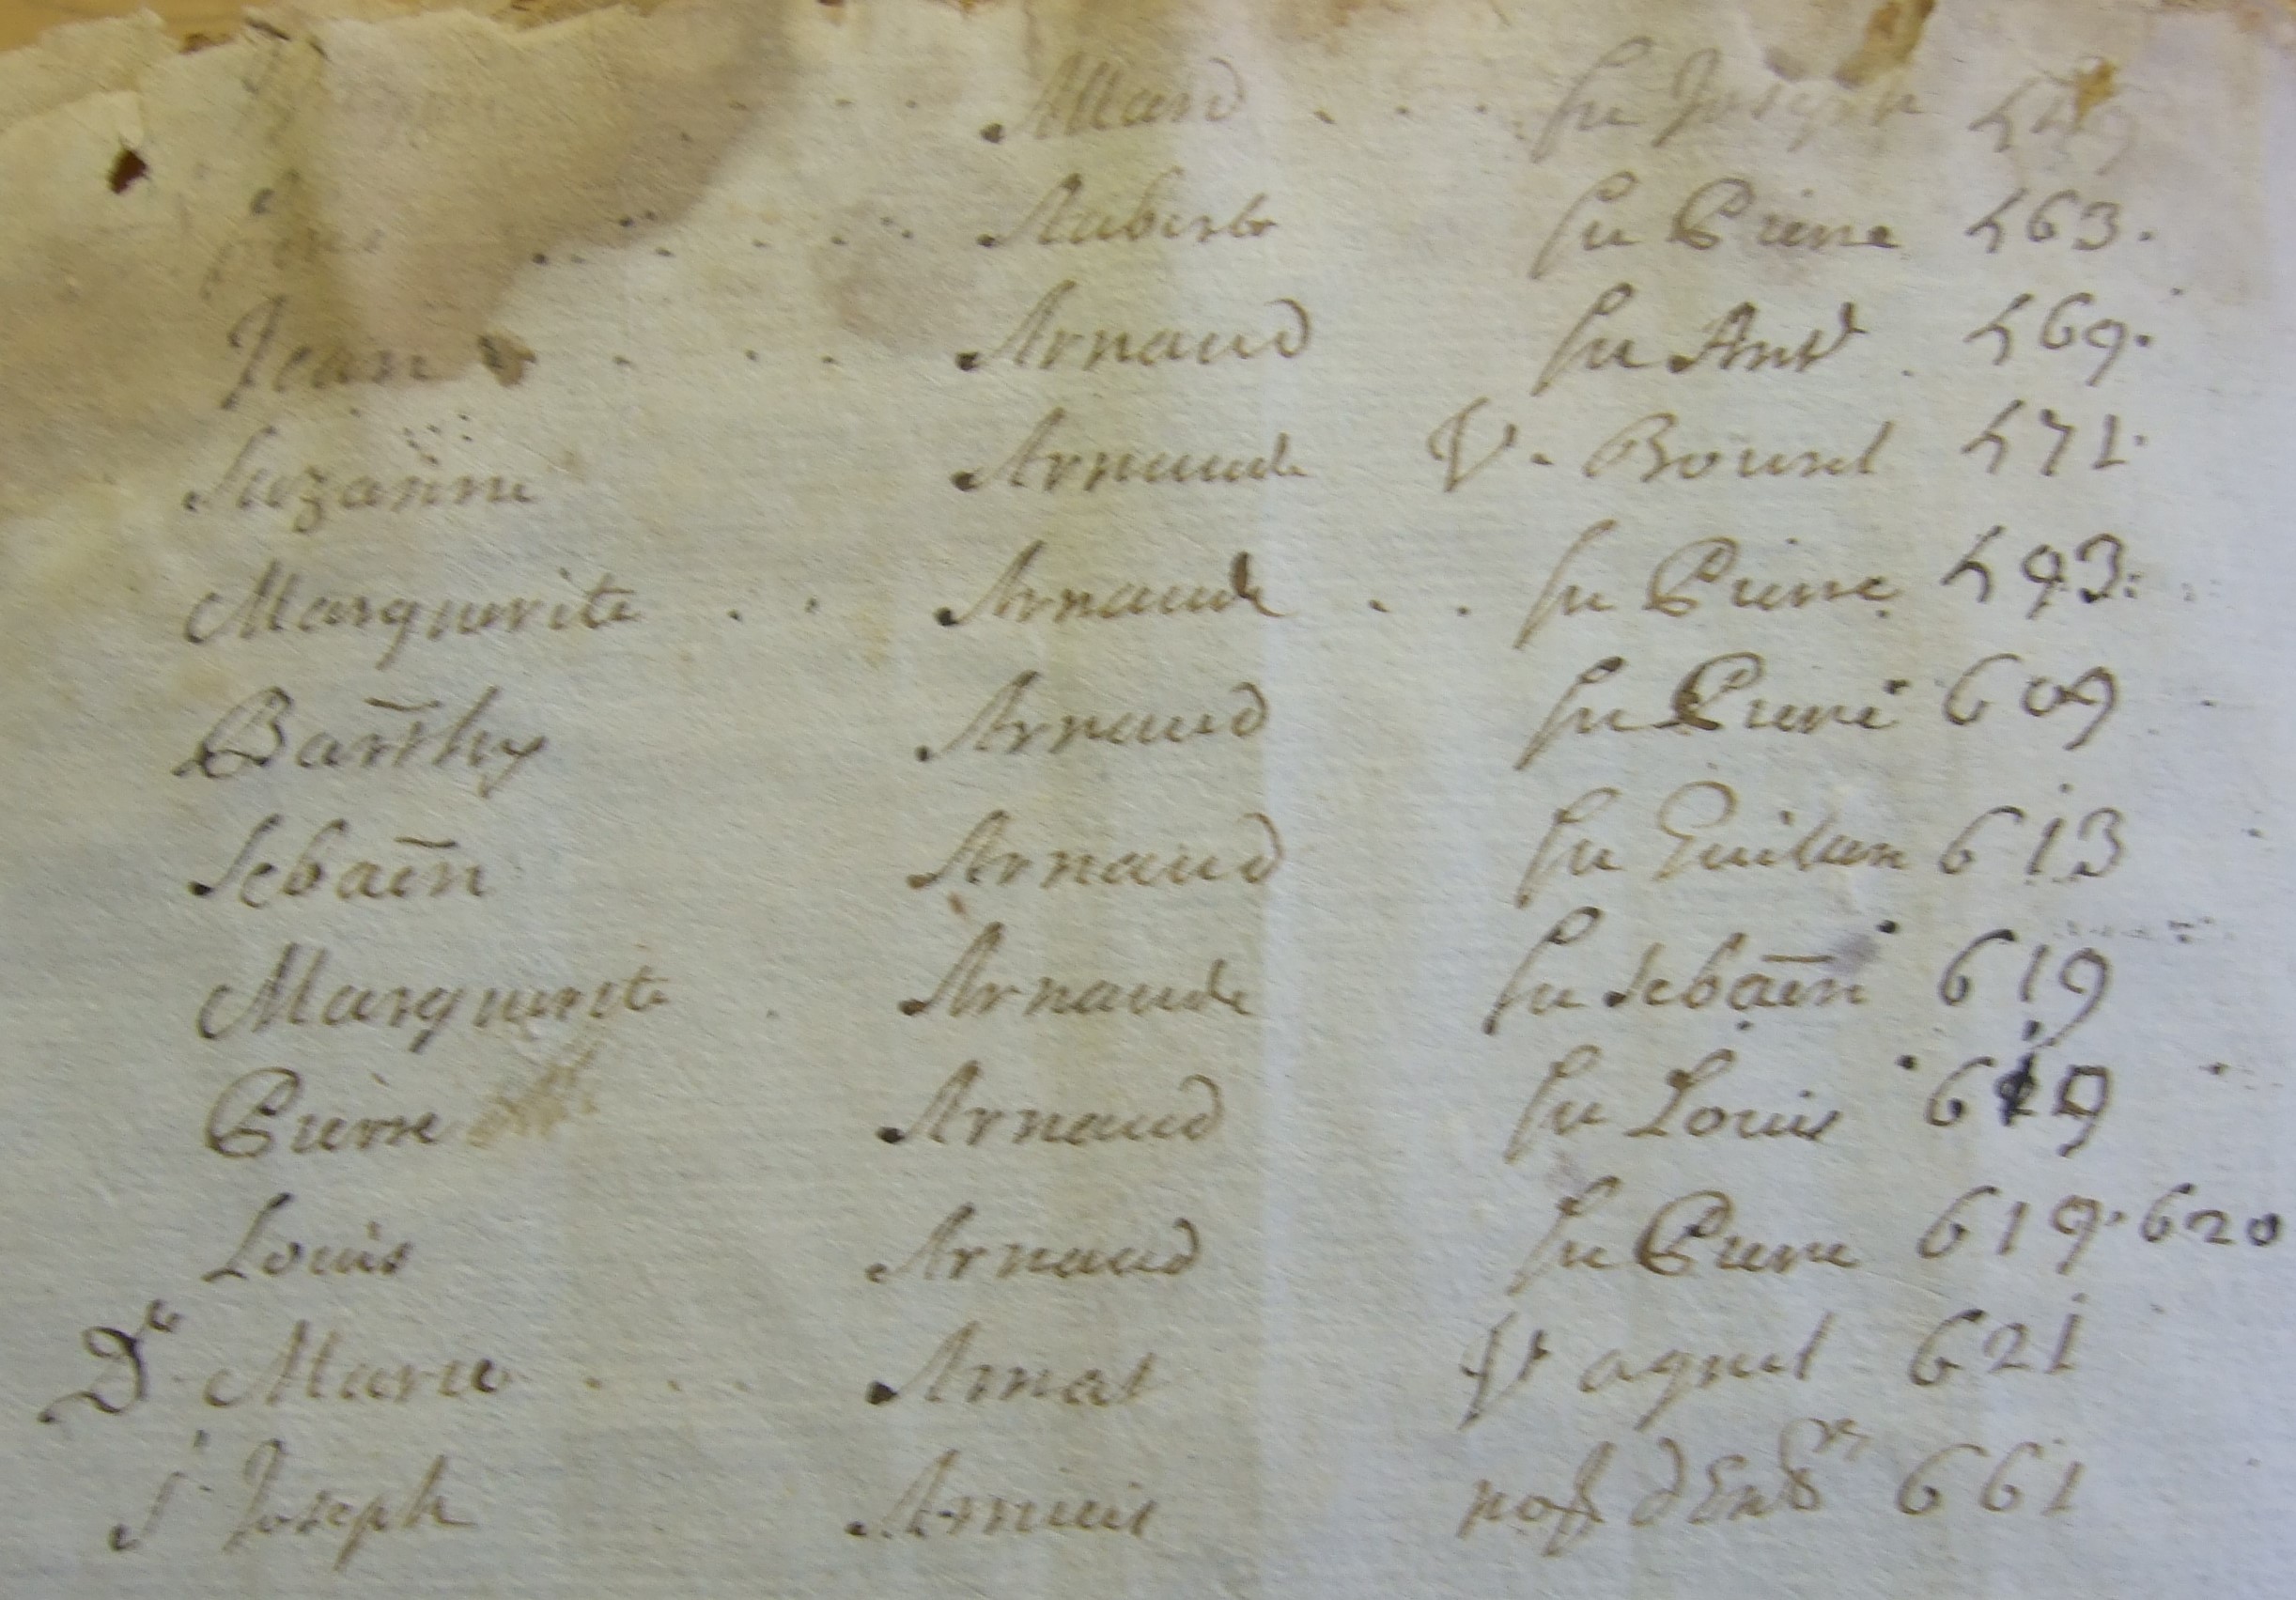 Allard . . . fu Joseph
Aubert fu Pierre 563.
Jean . . . Arnaud fu Antᵉ . 569.
Suzanne Arnaude Vᵉ. Bourel 571.
Marguerite . . Arnaude . . fu Pierre 593.
Bar̄thy Arnaud fu Pierre 609
Sebaen̄ Arnaud fu Guilaume 613
Marguerite . Arnaude fu Sebaen̄ 619
Pierre Arnaud fu Louis 619
Louis Arnaud fu Pierre 619. 620
Dˡᵉ Marie . . . Arnat Vᵉ agnel 621
Sʳ Joseph Arnuis 661